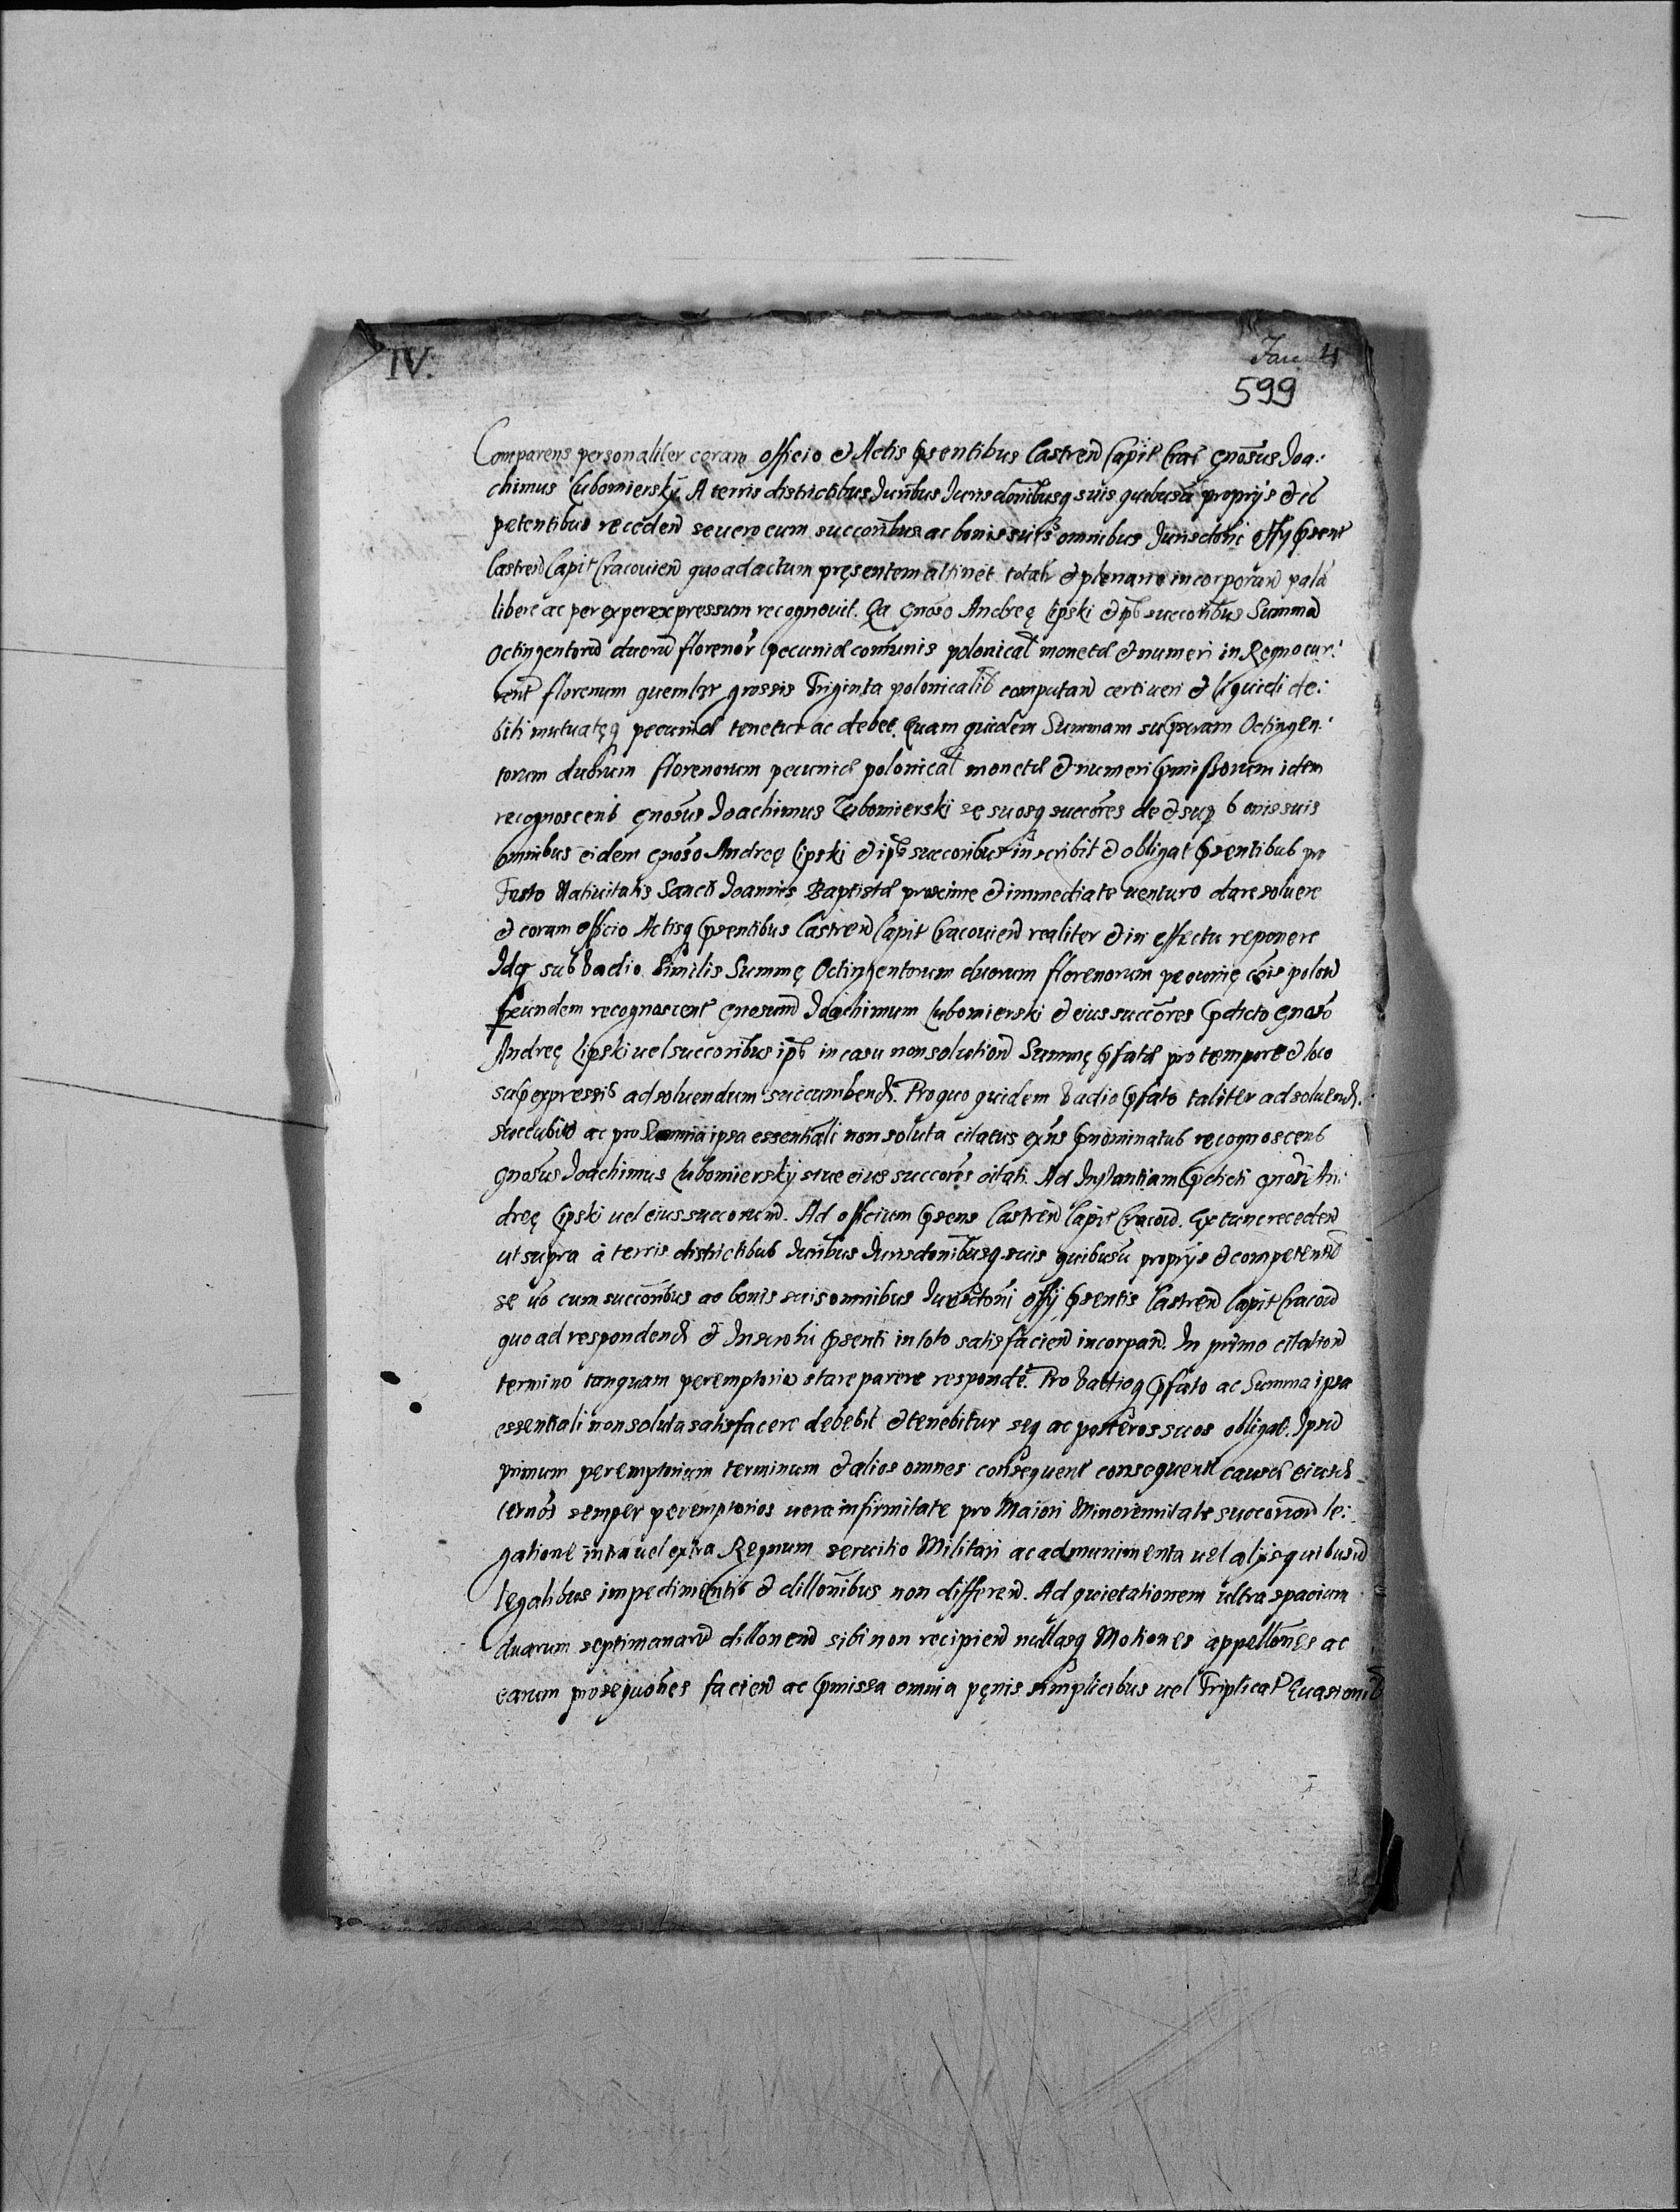 IV.
Jan 4
599
Comparens personaliter coram officio et Actis Psentibus Castren Capit Crac Gnosus Joa:
chimus Lubomiersky A terris districtibus Juribus Jurisdonibusq suis quibusu proprijs et co
petentibus receden se vero cum succoribus ac bonis suis omnibus Jurisdoni offy Psent
Castren Capit Cracovien quo ad actum pręsentem attinet totalr et plenarie incorporan pala
libere ac per expressum recognovit. Qa Gnoso Andreę Lipski et ips succoribus Summa
Octingentoru duoru florenor pecuniæ comunis polonical monetæ et numeri in Regno cur:
rent florenum quemlr grossis Triginta polonicalib computan certi veri et liquidi de:
biti mutuatęq pecuniæ tenetur ac debet. Quam quidem Summam supram Octingen:
torum duorum florenorum pecuniæ polonical monetæ et numeri Pmissorum idem
recognoscens Gnosus Joachimus Lubomierski se suosq succores de et sup bonis suis
omnibus eidem Gnoso Andreę Lipski et ips succoribus inscribit et obligat Psentibus pro
Festo Nativitatis Sancti Joannis Baptistæ proxime et immediate venturo dare solvere
et coram officio Actisq Psentibus Castren Capit Cracovien realiter et in effectu reponere
Idq sub vadio Similis Summę Octingentorum duorum florenorum pecunię cois polon
P eundem recognoscent Gnosum Joachimum Lubomierski et eius succores Pdicto Gnoso
Andreę Lipski vel succoribus ips in casu non solution Summę Pfatæ pro tempore et loco
supexpressis ad solvendum succumbend. Pro quo quidem vadio Pfato taliter ad solvend.
succubito ac pro Summa ipsa essentiali non soluta citatus exns Pnominatus recognoscens
Gnosus Joachimus Lubomiersky sive eius succores citati. Ad Instantiam Pdicti Gnosi An:
dreę Lipski vel eius succorum. Ad officium Psens Castren Capit Cracov. Ex tunc receden
ut supra à terris districtibus Juribus Jurisdonibusq suis quibusu proprijs et competentib
se vo cum succoribus ac bonis suis omnibus Jurisdoni offy Psentis Castren Capit Cracov
quo ad respondend et Inscrohi Psenti in toto satisfacien incorpan. In primo citation
termino tanquam peremptorio stare parere responde. Pro vadioq Pfato ac Summa ipsa
essentiali non soluta satisfacere debebit et tenebitur seq ac posteros suos obligat. Ipsu
primum peremptorium terminum et alios omnes consequent causæ eiusd
ternos semper peremptorios vera infirmitate pro Maiori Minorennitate succorum le:
gatione intra vel extra Regnum servitio Militari ac ad munimenta vel alijs quibusu
legalibus impedimentis et dillonibus non differen. Ad quietationem ultra spacium
duarum septimanaru dillonem sibi non recipien nullasq Motiones appellones ac
earum prosequones facien ac Pmissa omnia pęnis simplicibus vel Triplicat Evasionib